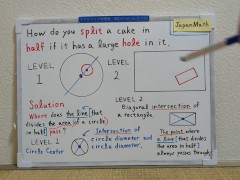 JapanMath
How do you split a cake in
half if it has a large hole in it.
LEVEL
1
LEVEL
2
Solution
Where does the line [that
divides the area of a circle
in half] pass?
LEVEL 1
Circle Center
Intersection of
circle diameter and
circle diameter.
LEVEL 2
Diagonal intersection of
a rectangle.
The point where
a line [that divides
the area in half]
always passes through